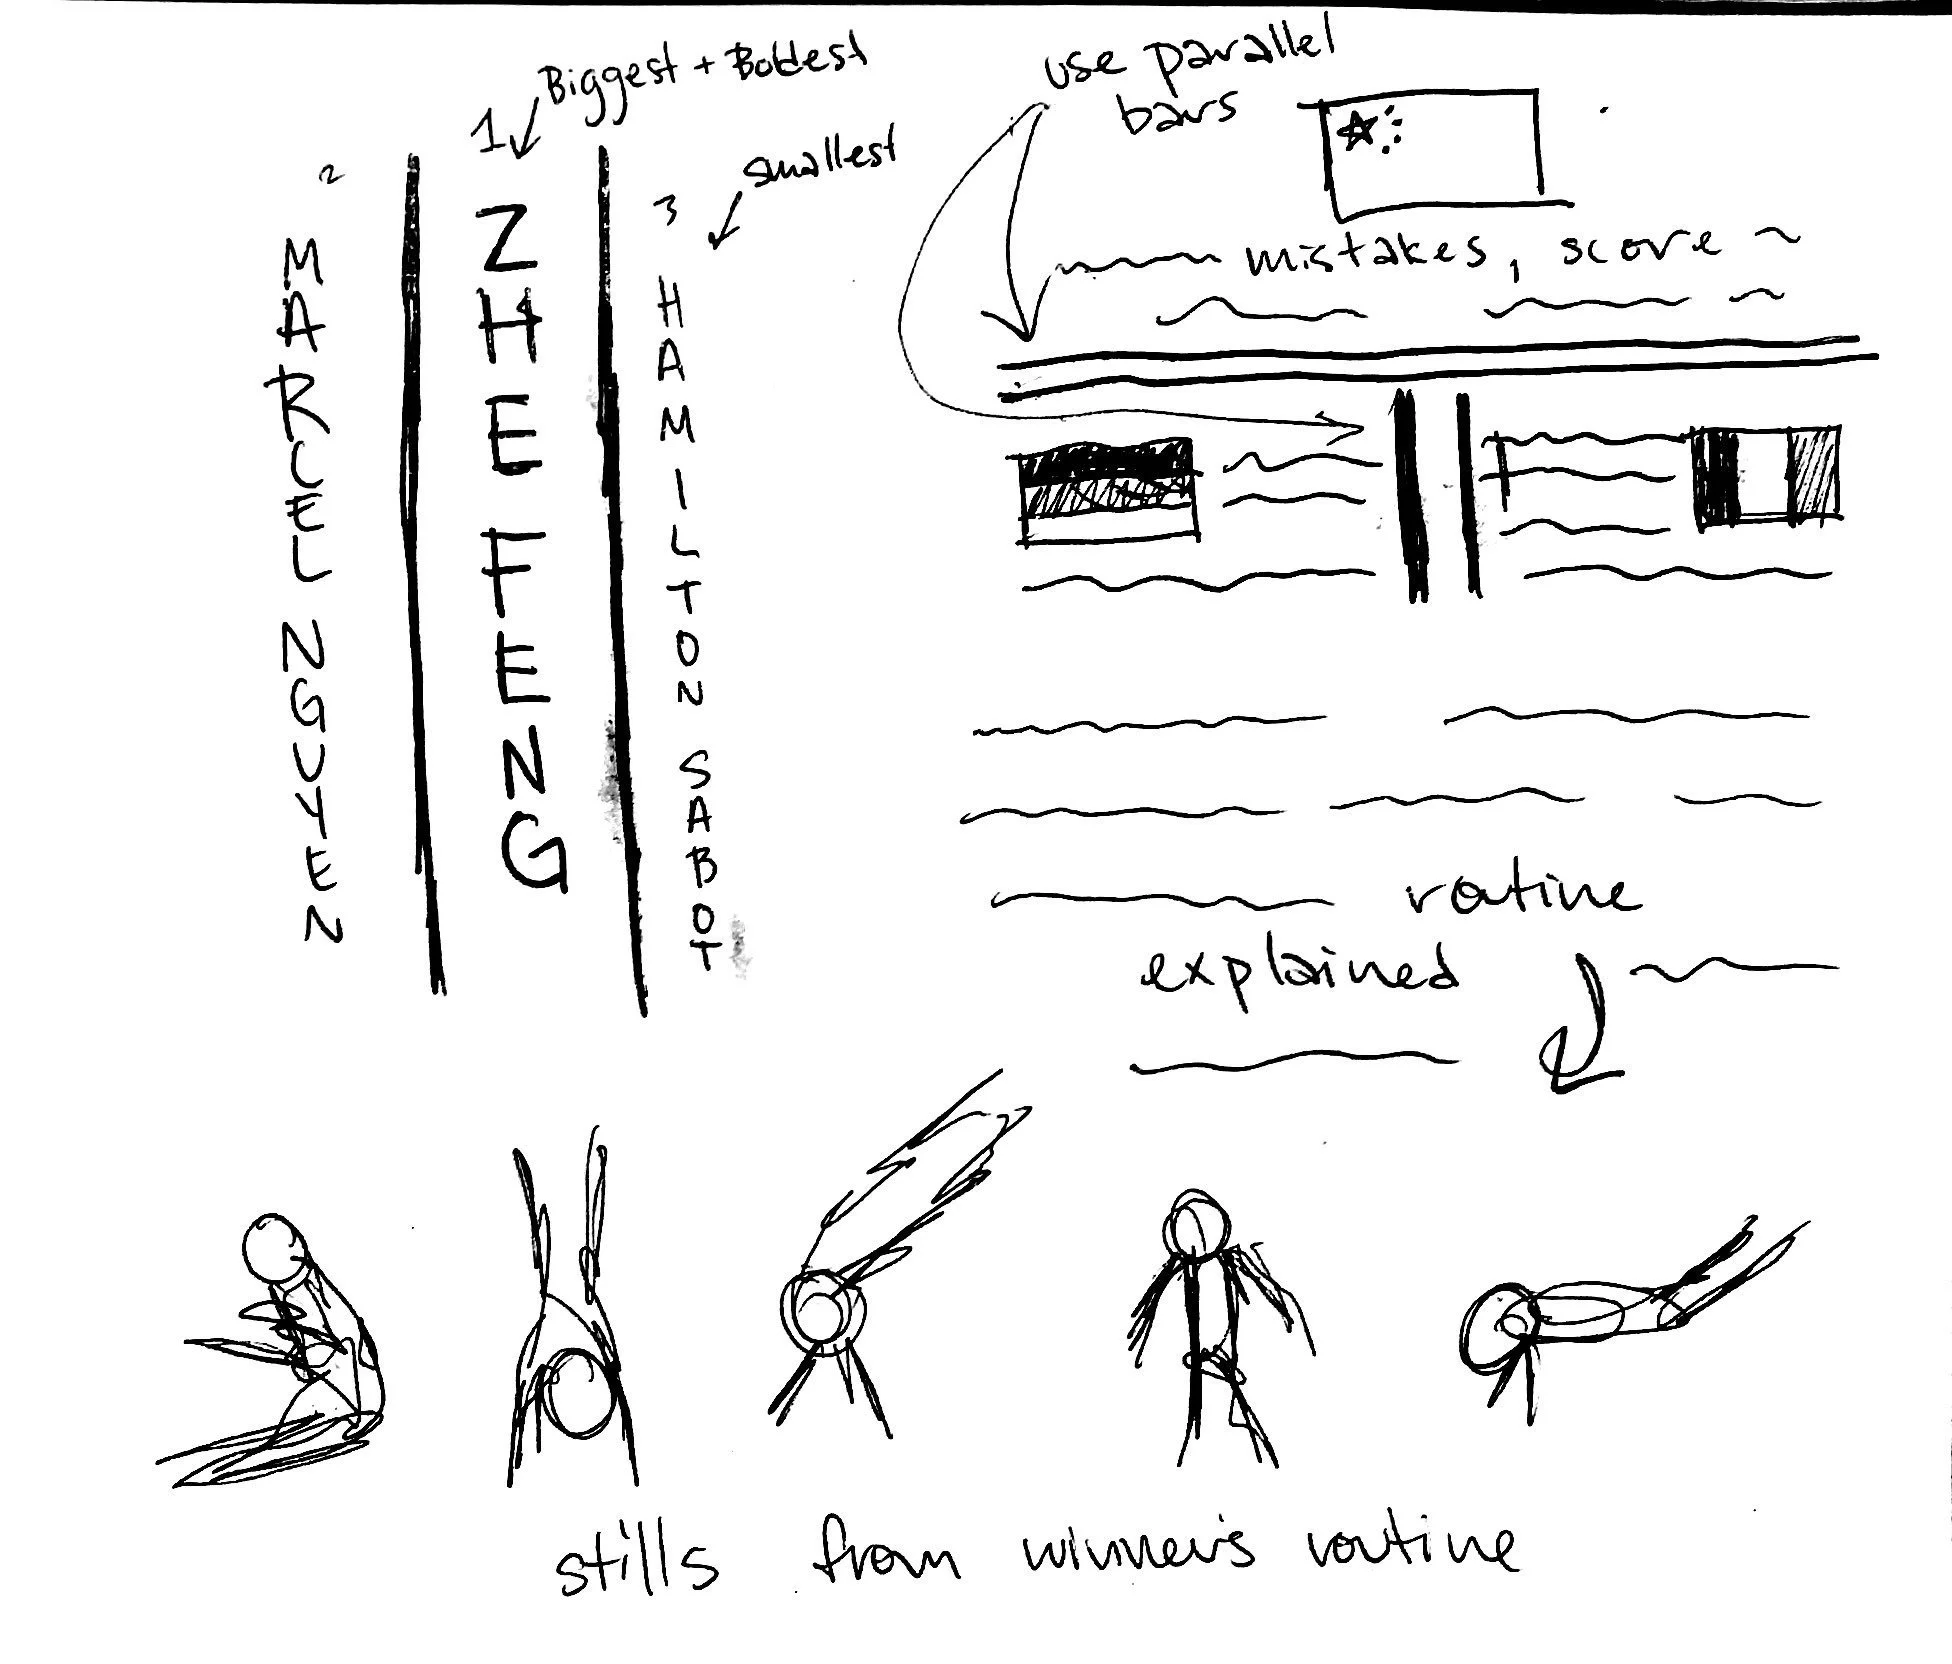 Biggest + Boldest
smallest
2
MARCEL NGUYEN
1
ZHE FENG
3
HAMILTON SABOT
use parallel
bars
mistakes, score
routine
explained
stills from winner's routine